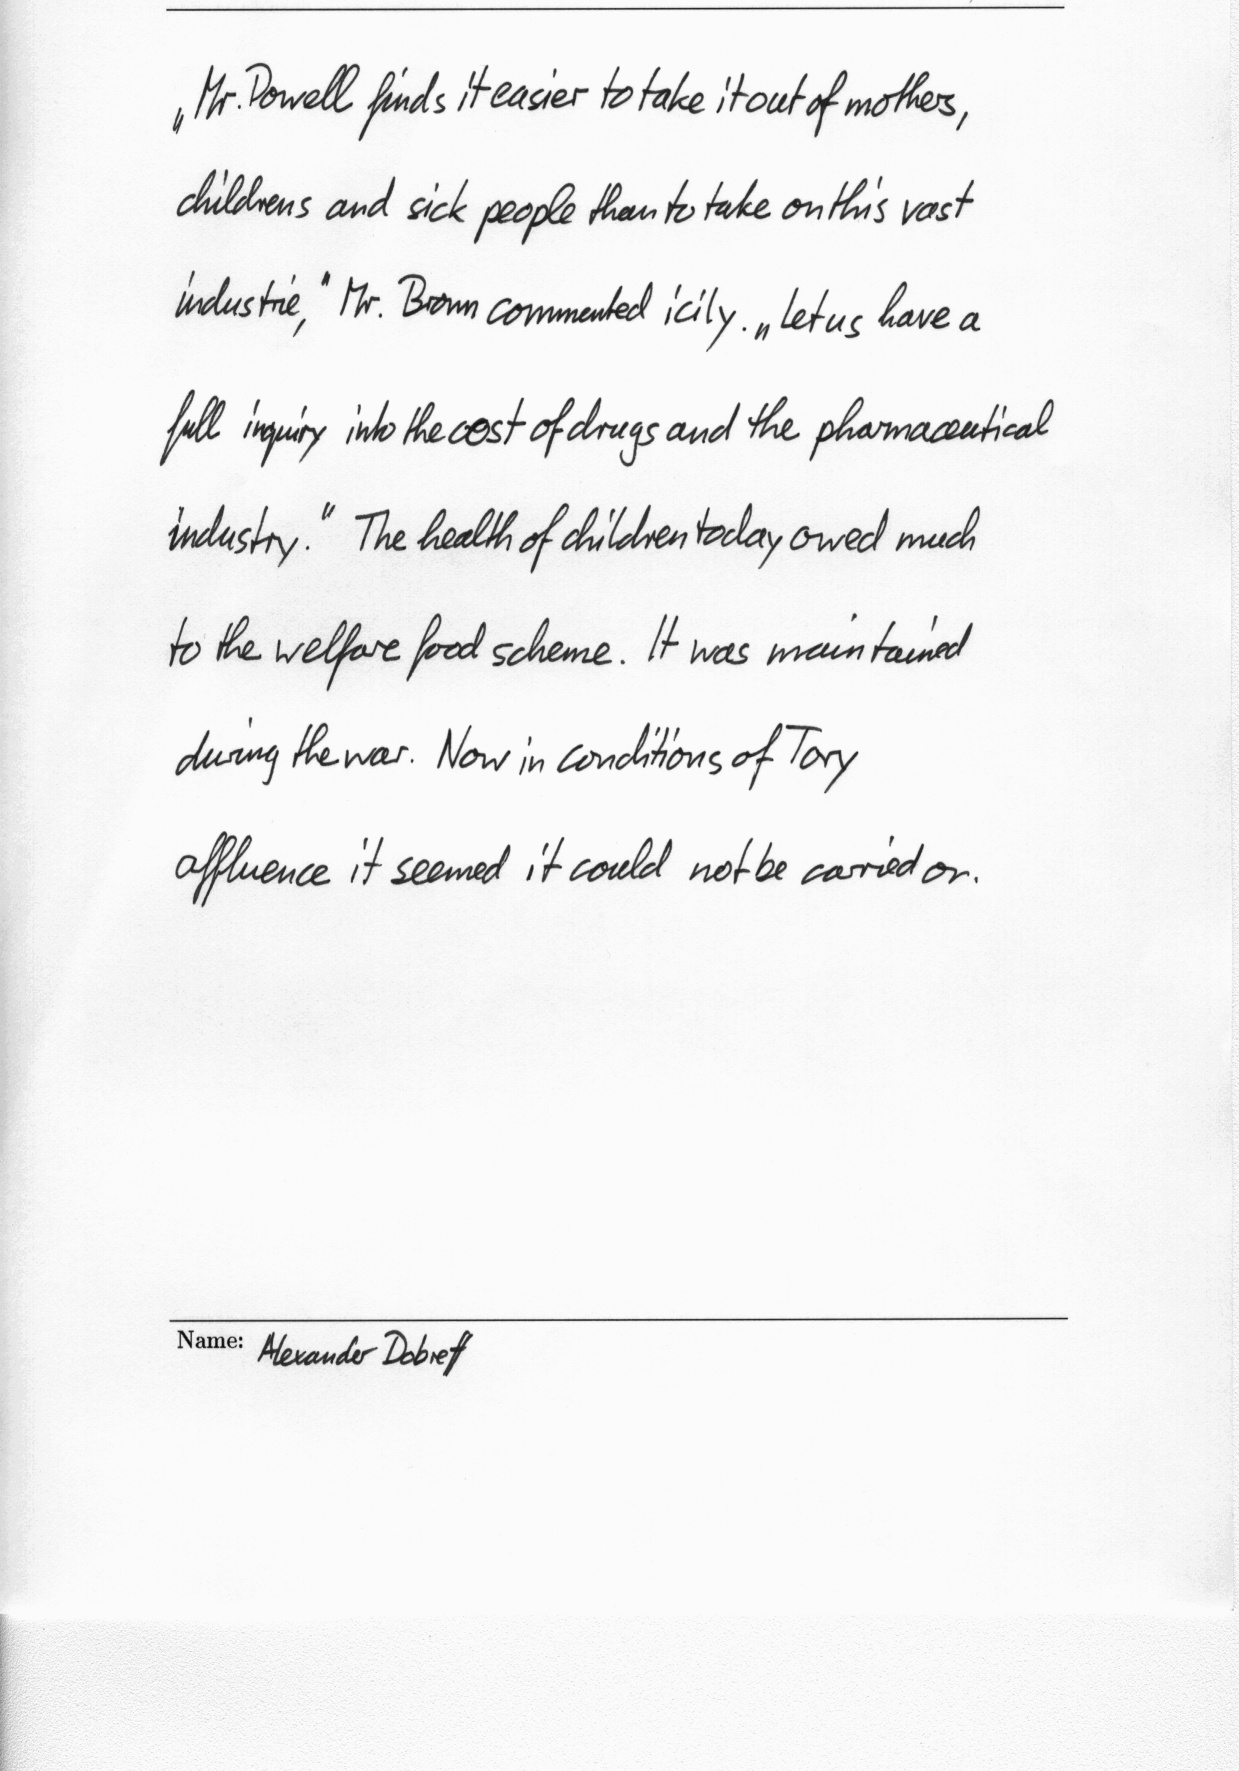 „Mr. Powell finds it easier to take it out of mothers,
childrens and sick people than to take on this vast
industrie,“ Mr. Brown commented icily. „Let us have a
full inquiry into the cost of drugs and the pharmaceutical
industry.“ The health of children today owed much
to the welfare food scheme. It was maintained
during the war. Now in conditions of Tory
affluence it seemed it could not be carried on.
Name: Alexander Dobreff